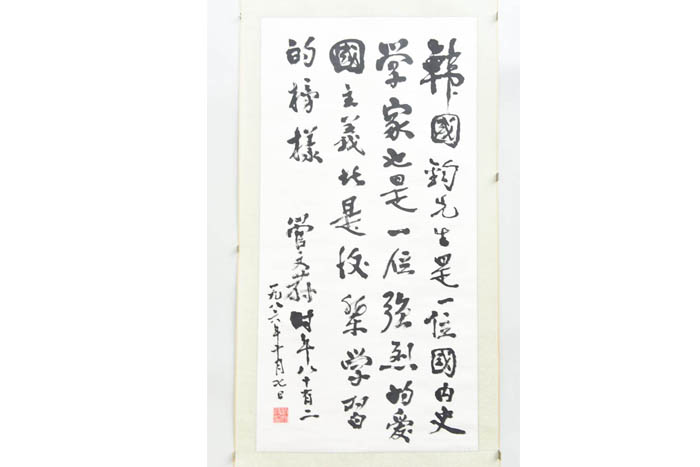 韓國鈞先生是一位國内史
学家也是一位強烈的愛
國主義者是後輩学習
的榜樣
管文蔚时年八十有二
一九八六年十月七日